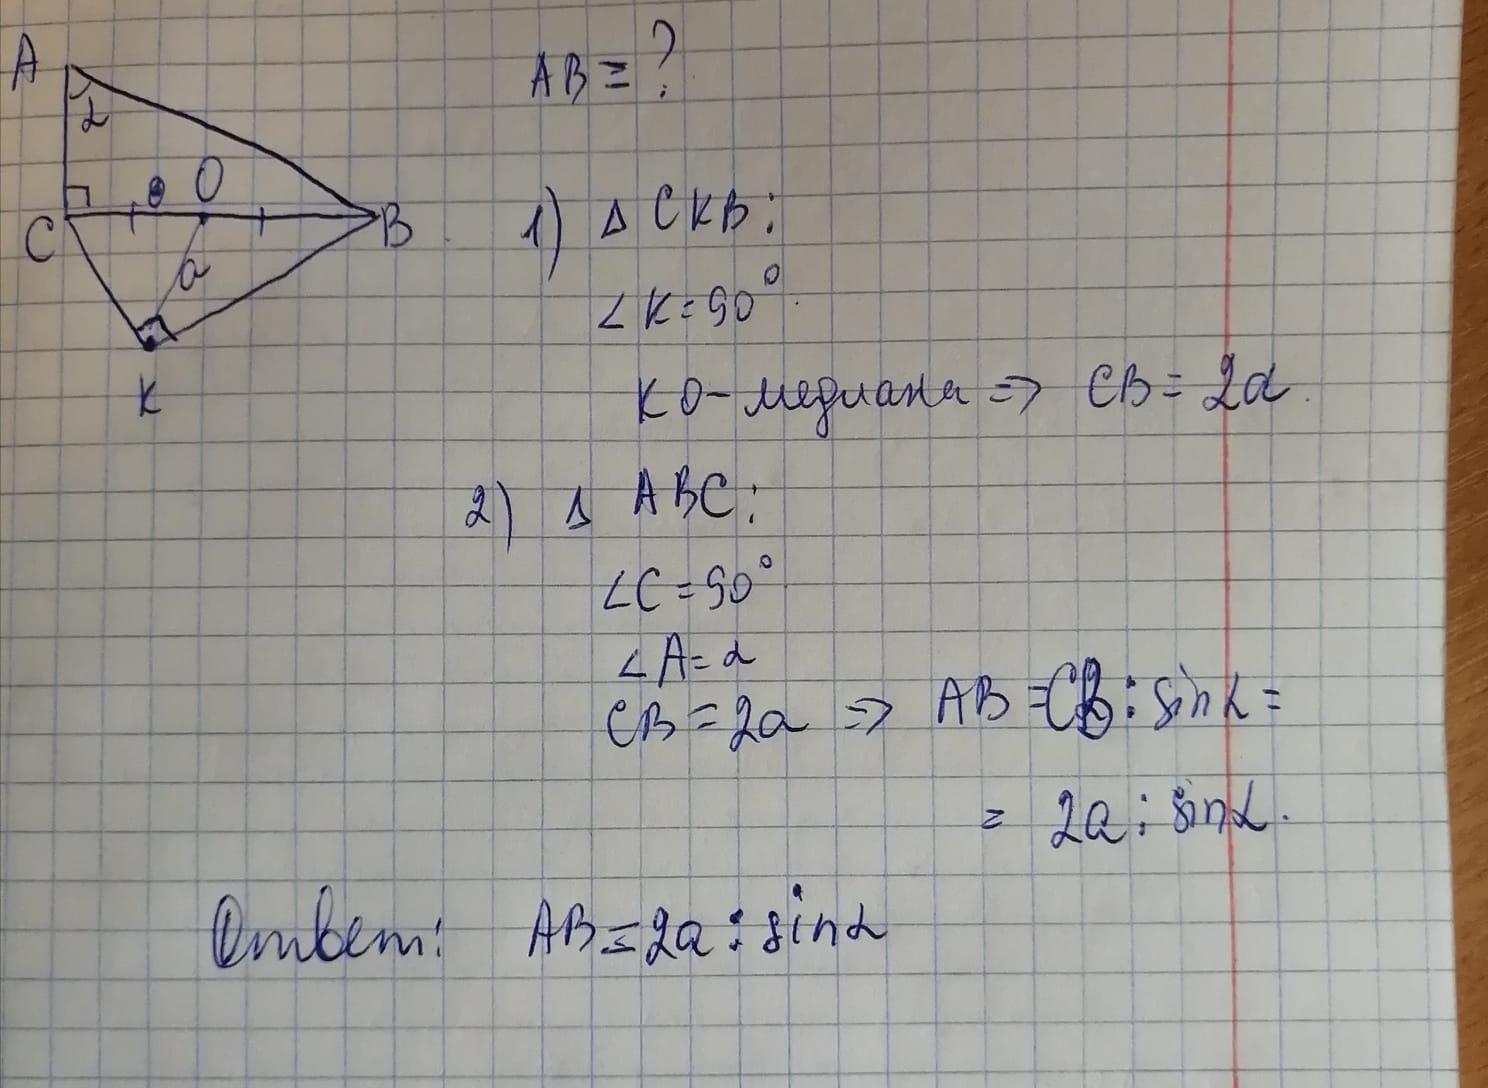 A
α
O
C
B
a
K
AB = ?
1) Δ CKB:
∠K = 90°
KO - медиана => CB = 2a.
2) Δ ABC:
∠C = 90°
∠A = α
CB = 2a => AB = CB : sin α =
= 2a : sin α.
Ответ: AB = 2a : sin α